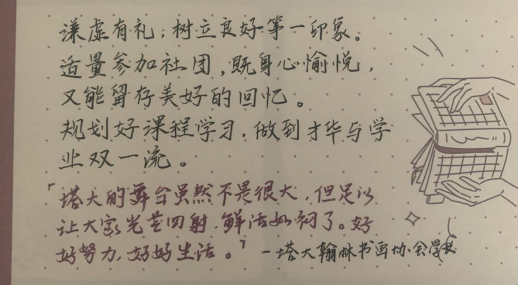 谦虚有礼，树立良好第一印象。
适量参加社团，既身心愉悦，
又能留存美好的回忆。
规划好课程学习，做到才华与学
业双一流。
「塔大的舞台虽然不是很大，但足以
让大家光芒四射，鲜活如初了。好
好努力，好好生活。」
—塔大翰林书画协会学长